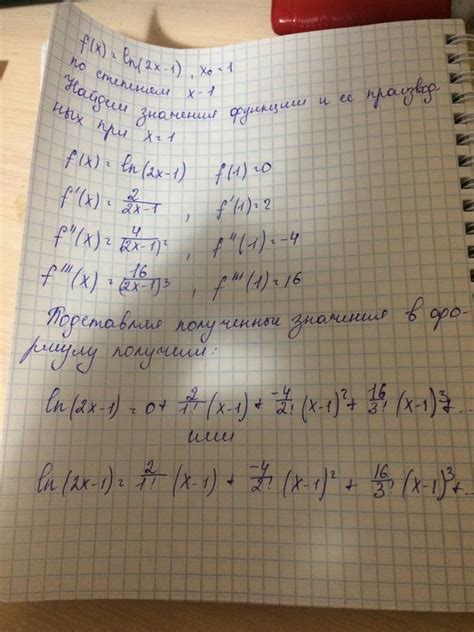 f(x) = ln(2x-1), x₀ = 1
по степеням x-1
Найдем значения функции и ее производ-
ных при x = 1
f(x) = ln(2x-1) f(1) = 0
f'(x) = 2/(2x-1), f'(1) = 2
f''(x) = 4/(2x-1)², f''(1) = -4
f'''(x) = 16/(2x-1)³, f'''(1) = 16
Подставляя полученные значения в фор-
мулу получим:
ln(2x-1) = 0 + 2/1! (x-1) + -4/2! (x-1)² + 16/3! (x-1)³ + ...
или
ln(2x-1) = 2/1! (x-1) + -4/2! (x-1)² + 16/3! (x-1)³ + ...